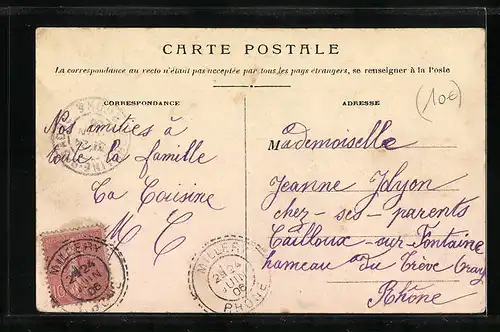 CARTE POSTALE
La correspondance au recto n'étant pas acceptée par tous les pays étrangers, se renseigner à la Poste
CORRESPONDANCE
Nos amitiés à
toute la famille
Ta Cousine
M C
MILLERY
24
JUIN
06
RHÔNE
MILLERY
24
JUIN
06
RHÔNE
ADRESSE
(10€)
Mademoiselle
Jeanne
chez-ses-parents
Cailloux-sur-Fontaine
hameau du Trève
Rhône